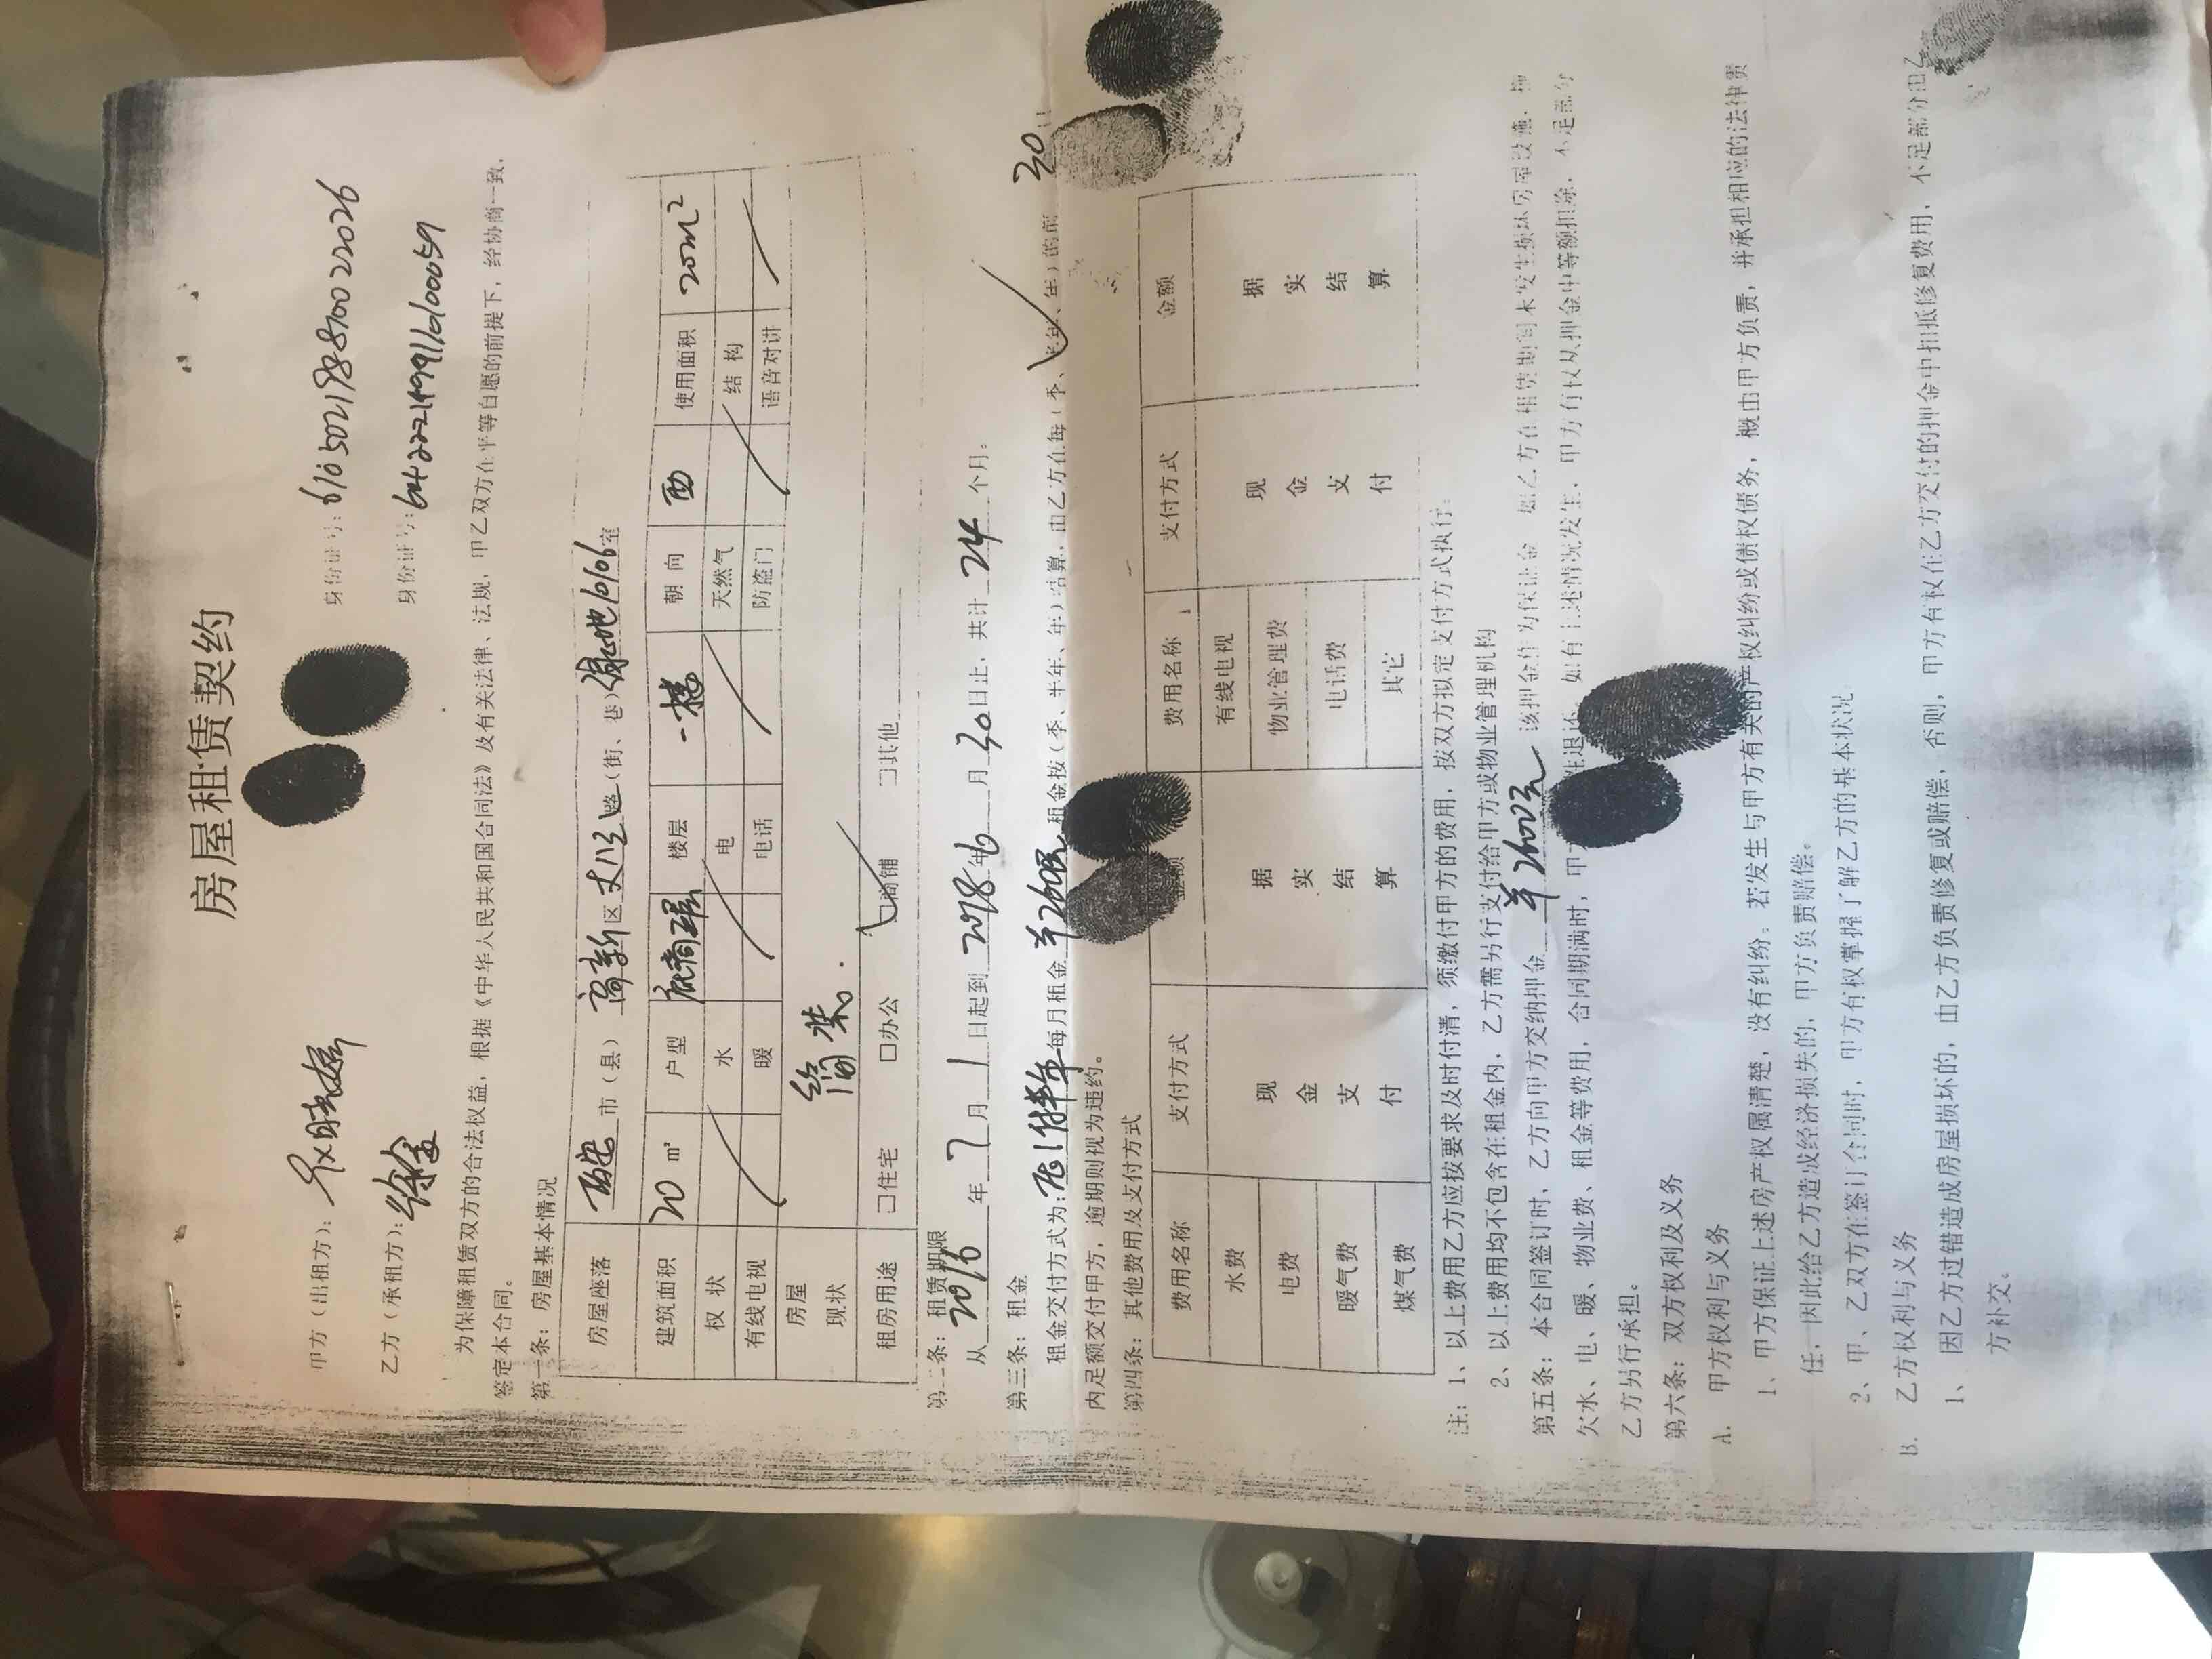 房屋租赁契约
甲方（出租方）： 身份证号：610502198810022026
乙方（承租方）：徐金 身份证号：
为保障租赁双方的合法权益，根据《中华人民共和国合同法》及有关法律、法规，甲乙双方在平等自愿的前提下，经协商一致，
签定本合同。
第一条：房屋基本情况
房屋座落 西安市（县）高新区丈八三路（街、巷）绿地10106室
建筑面积 20 m² 户型 楼层 一楼 朝向 西 使用面积 20m²
权状 水 电 天然气 结构
有线电视 暖 电话 防盗门 语音对讲
房屋
现状
简装.
租房用途 □住宅 □办公 □商铺 □其他
第二条：租赁期限
从2016年7月1日起到2018年6月30日止，共计24个月。
第三条：租金
租金交付方式为：押1付半年每月租金¥2600元租金按（季、半年、年）结算，由乙方在每（季、半年、年）的前30日
内足额交付甲方，逾期则视为违约。
第四条：其他费用及支付方式
费用名称 支付方式 金额 费用名称 支付方式 金额
水费 现金支付 据实结算 有线电视 现金支付 据实结算
电费 物业管理费
暖气费 电话费
煤气费 其它
注：1、以上费用乙方应按要求及时付清，须缴付甲方的费用，按双方拟定支付方式执行。
2、以上费用均不包含在租金内，乙方需另行支付给甲方或物业管理机构
第五条：本合同签订时，乙方向甲方交纳押金¥2600元 该押金作为保证金 如乙方在租赁期间未发生损坏房屋设施，拖
欠水、电、暖、物业费、租金等费用，合同期满时，甲方性退还。如有上述情况发生，甲方有权从押金中等额扣除，不足部分
乙方另行承担。
第六条：双方权利及义务
A. 甲方权利与义务
1、甲方保证上述房产权属清楚，没有纠纷。若发生与甲方有关的产权纠纷或债权债务，概由甲方负责，并承担相应的法律责
任，因此给乙方造成经济损失的，甲方负责赔偿。
2、甲、乙双方在签订合同时，甲方有权掌握了解乙方的基本状况
B. 乙方权利与义务
1、因乙方过错造成房屋损坏的，由乙方负责修复或赔偿，否则，甲方有权在乙方交付的押金中扣抵修复费用，不足部分由乙
方补交。